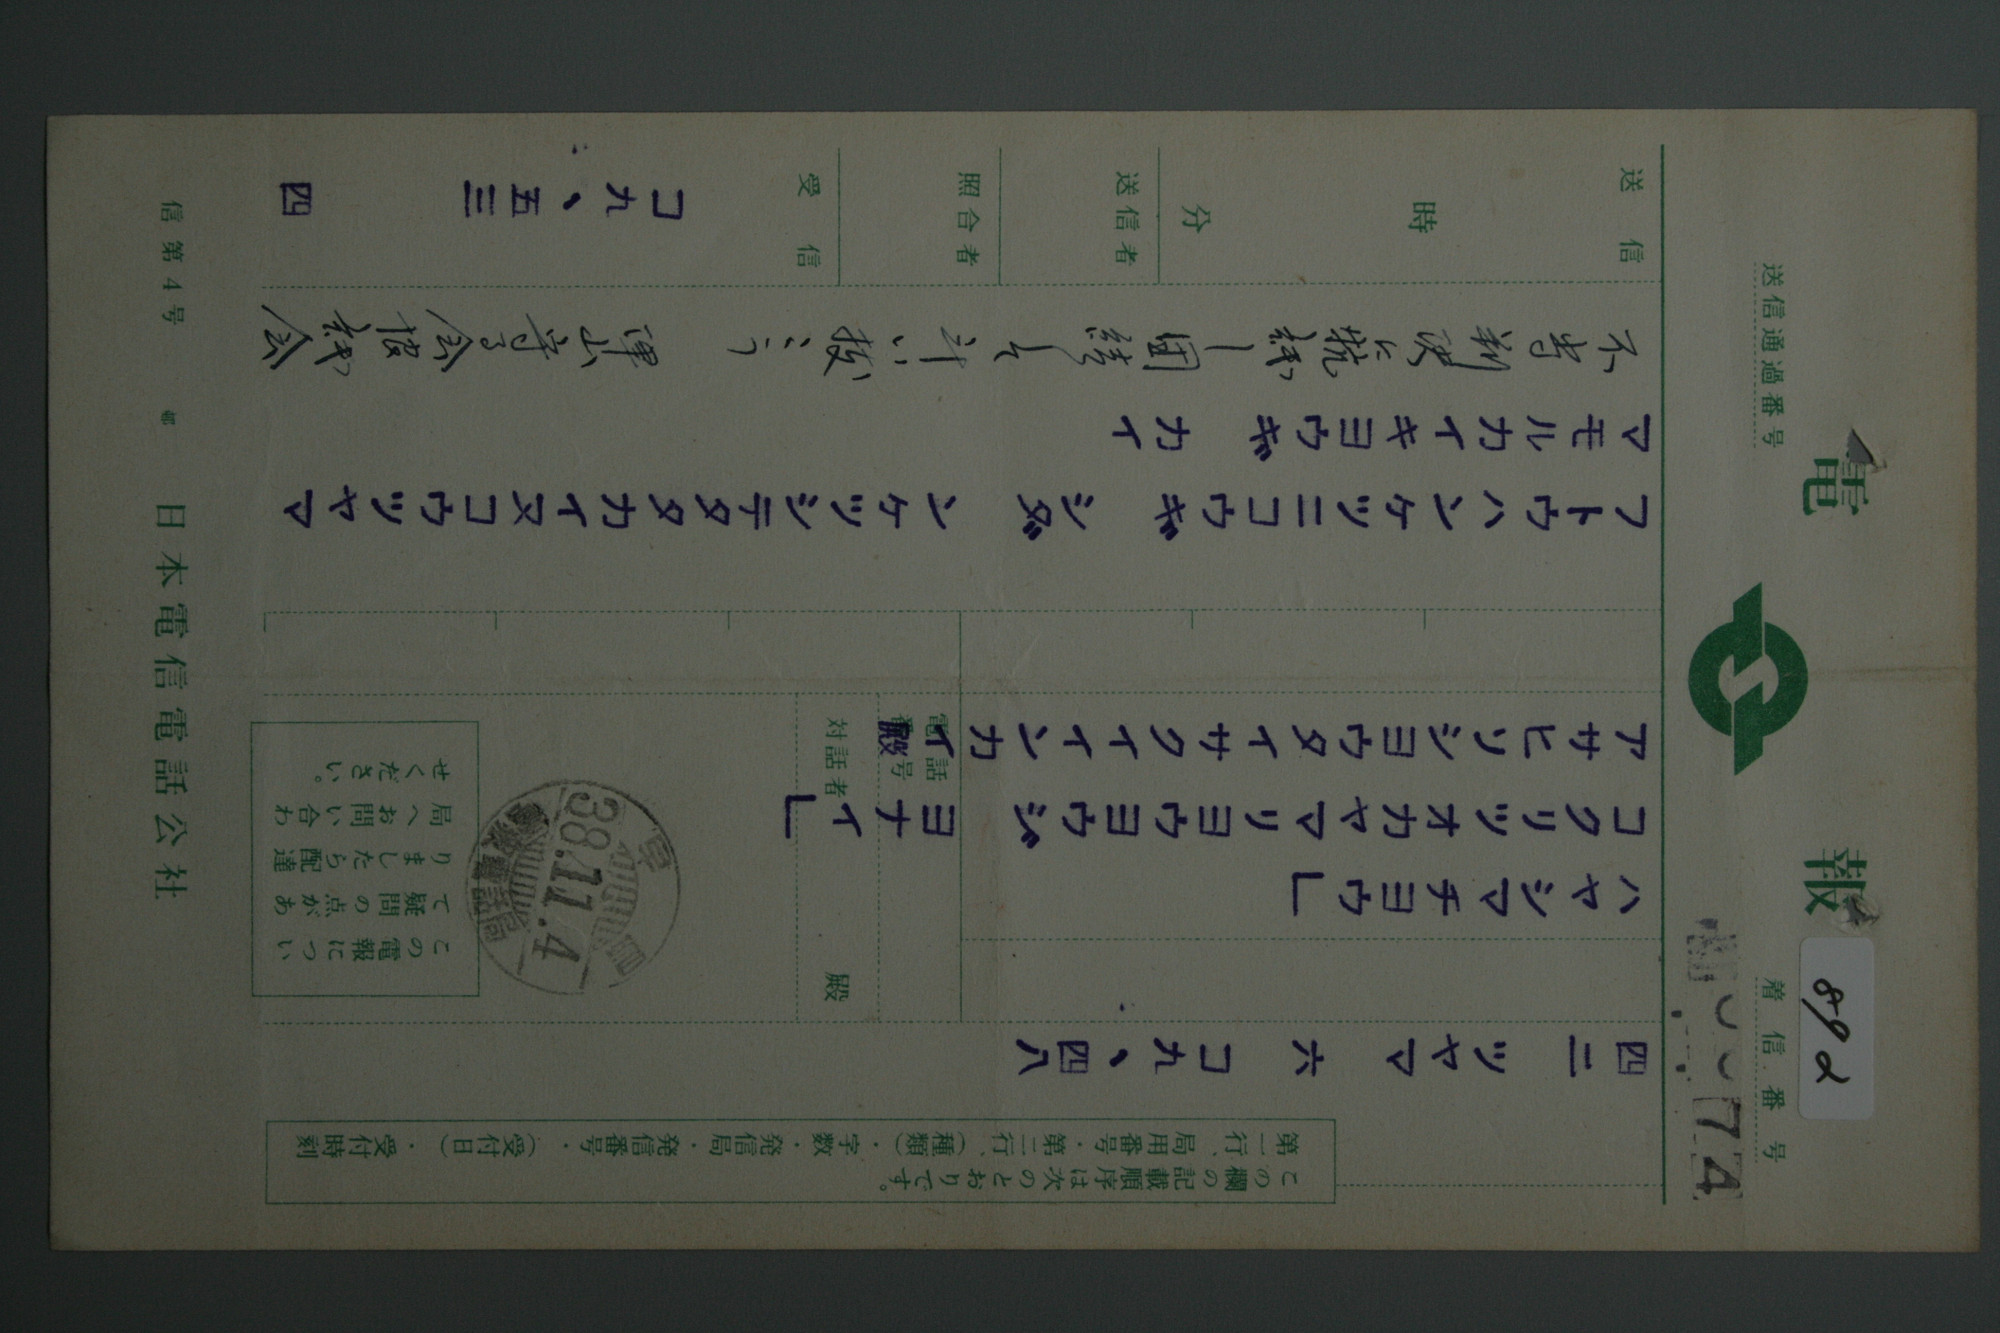 電 報
送信通過番号
着信番号
892
74
この欄の記載順序は次のとおりです。
第一行、局用番号・第二行、(種類)・字数・発信局・発信番号・(受付日)・受付時刻
四二 ツヤマ 六 コ九、四八
ハヤシマチヨウ」
コクリツオカヤマリヨウヨウジヨナイ」
アサヒソシヨウタイサクイインカイ殿
電話番号
対話者 殿
フトウハンケツニコウギ シダンケツシテタタカイヌコウツヤマ
マモルカイキヨウギカイ
不当判決に抗議し団結して斗い抜こう 津山守る会
送信
時
分
送信者
照合者
受信
コ九、五三 四
38.11.4
この電報につい
て疑問の点があ
りましたら配達
局へお問い合わ
せください。
信第4号 日本電信電話公社